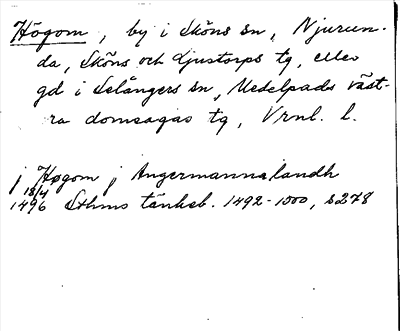 Högom, by i Sköns sn, Njurun-
da, Sköns och Ljustorps tg, eller
gd i Selångers sn, Medelpads väst-
ra domsagas tg, Vrnl. l.
j Høgom j Angermannalandh
18/4
1496 Sthms tänkeb. 1492-1500, s278